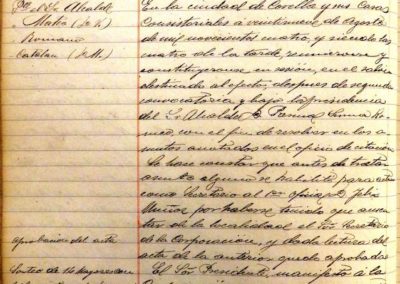 Sr. Alcalde
Romano
Catalan (D. M.)
En la ciudad de Corella y sus Casas
Consistoriales a veintinueve de Agosto
de mil novecientos cuatro, y siendo las
cuatro de la tarde, reunieronse y
constituyeronse en sesión, en el salón
destinado al efecto, despues de segunda
convocatoria y bajo la presidencia
del Sr Alcalde
con el fin de resolver en los a-
suntos anotados en el oficio de citación
Se hace constar que antes de tratar
asunto alguno se habilitó para actuar
como Secretario al 1er oficial D. Felix
Muñoz por haberse tenido que ausen-
tar de la localidad el Sor Secretario
de la Corporación, y dada lectura del
aprobación del acta
acta de la anterior quedó aprobada
Sorteo de
El Sor Presidente, manifestó á la